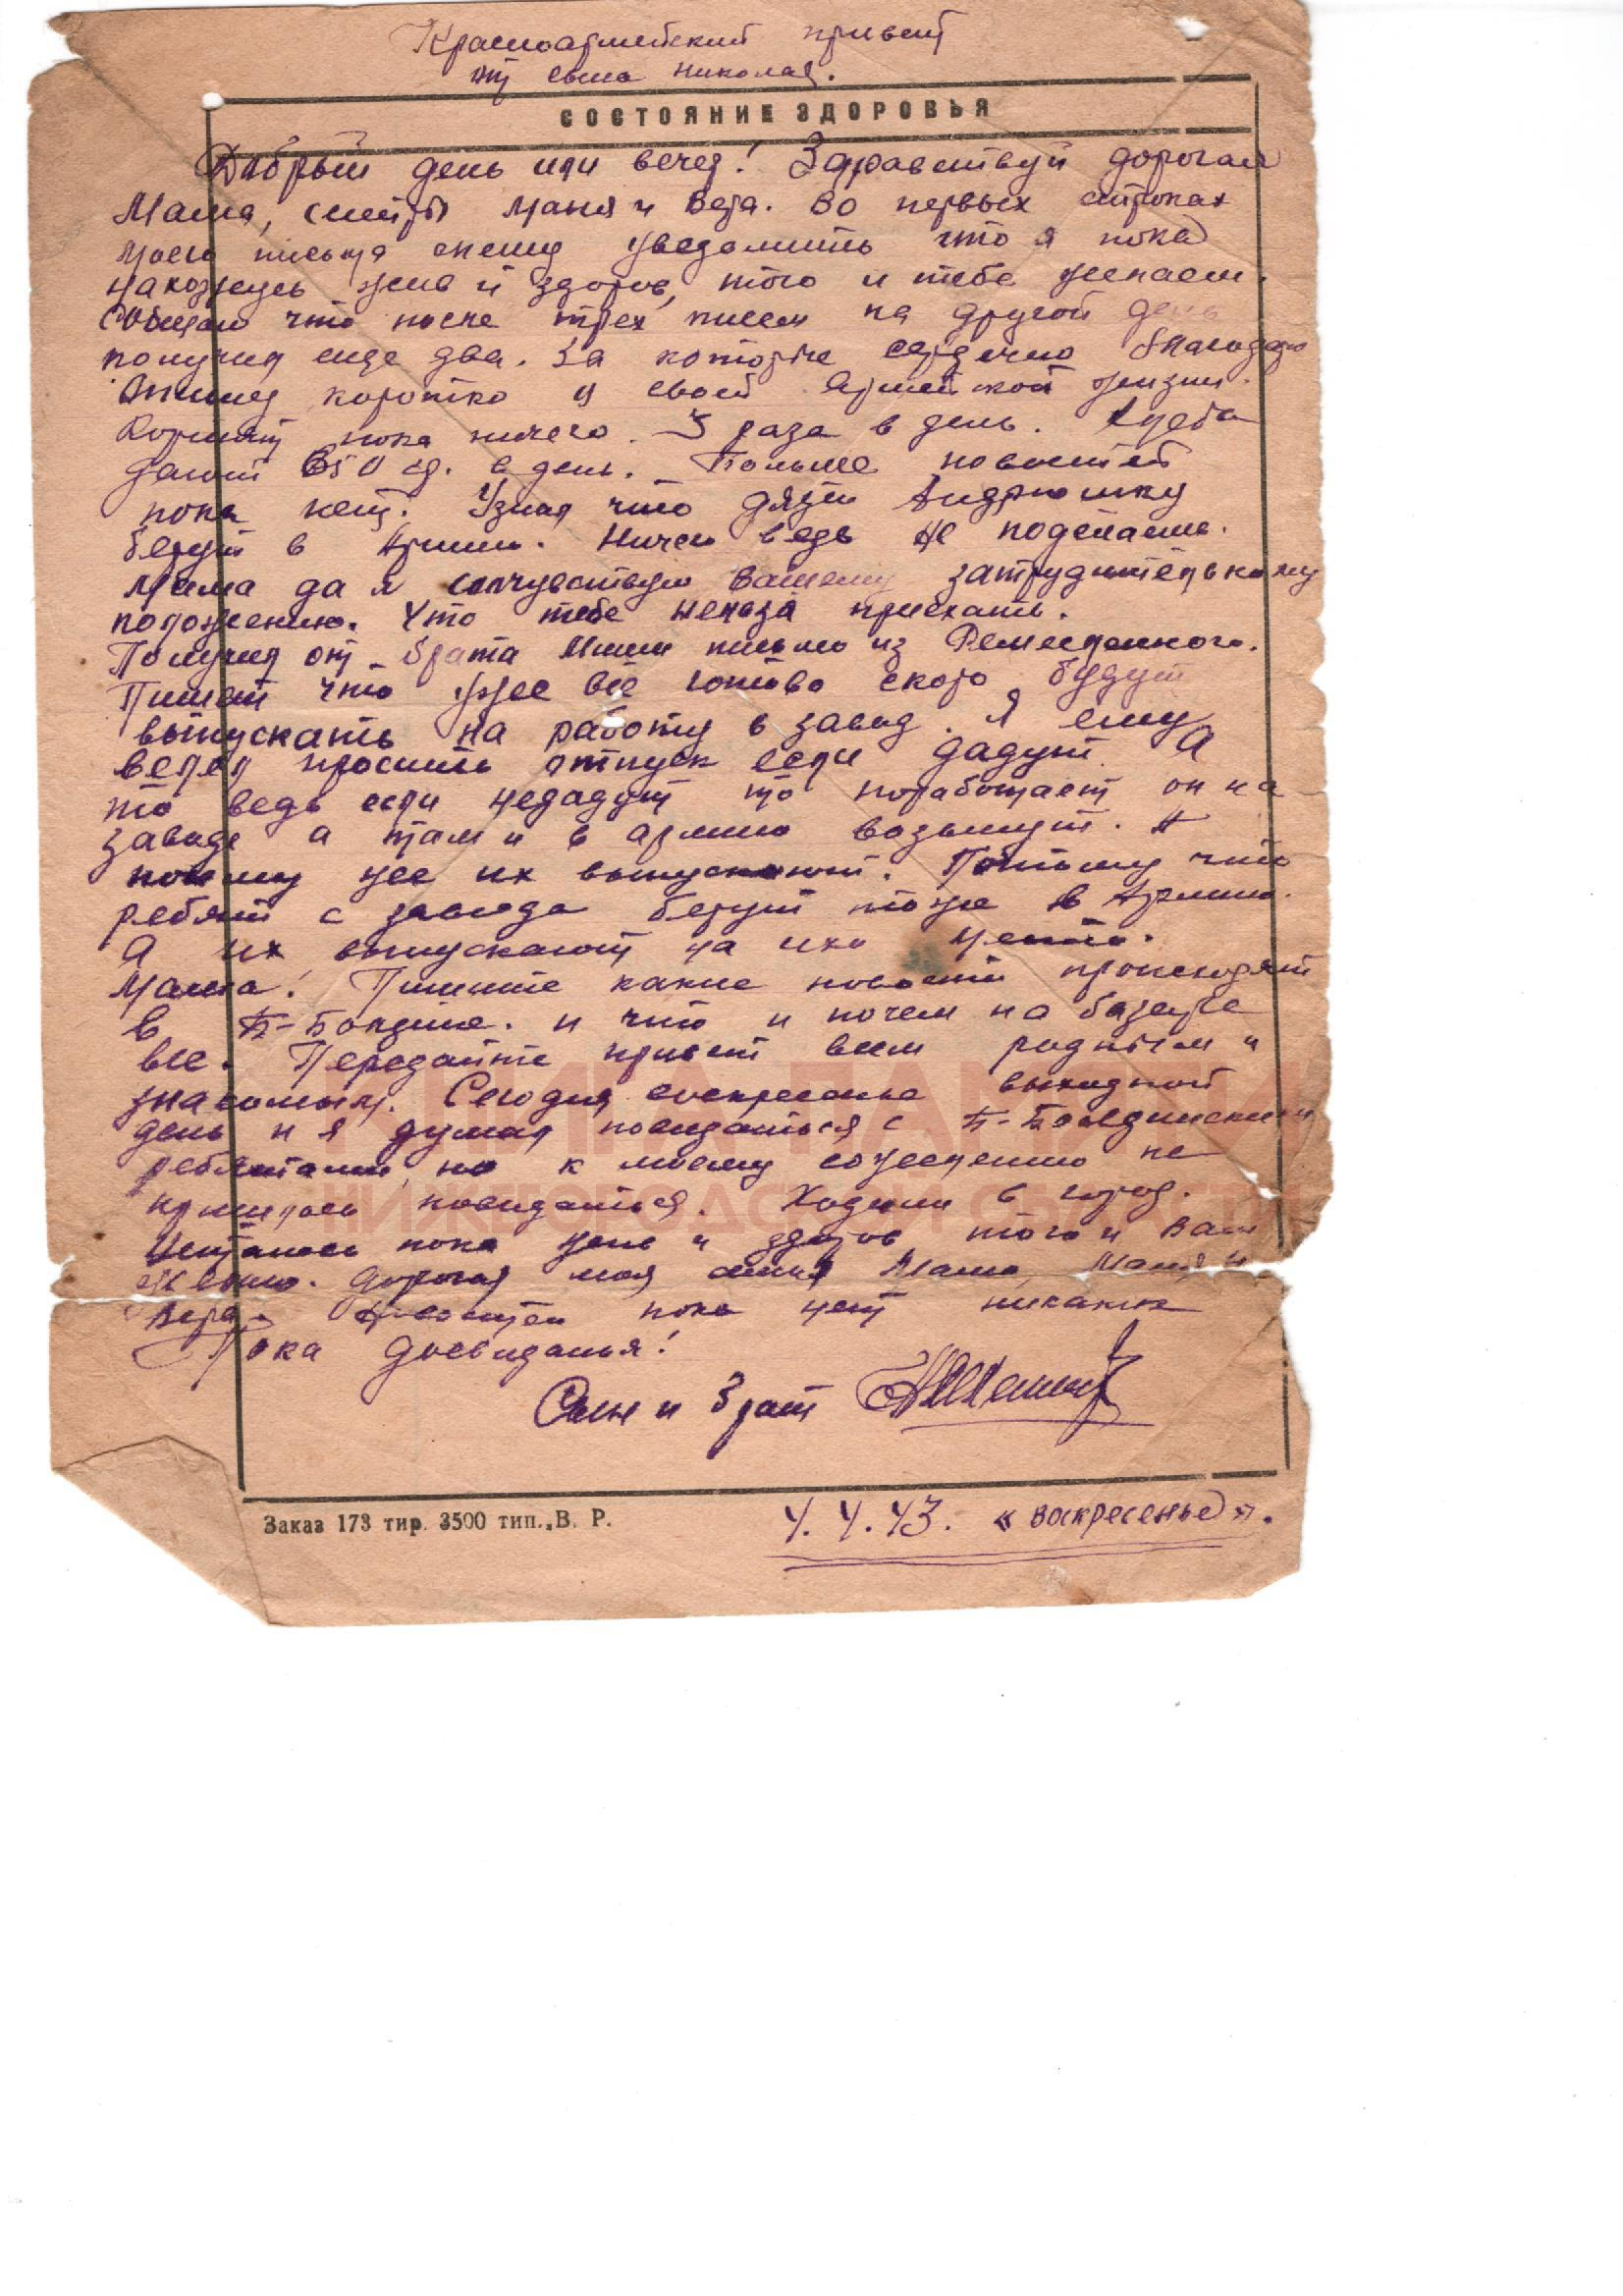 Красноармейский привет
от сына Николая.
СОСТОЯНИЕ ЗДОРОВЬЯ
Добрый день или вечер! Здравствуй дорогая
Мама, сестры Маня и Вера. Во первых строках
моего письма спешу уведомить что я пока
нахожусь жив и здоров, того и тебе желаем.
Сообщаю что после трех писем на другой день
получил еще два. За которые сердечно благодарю
Опишу коротко о своей Армейской жизни.
Кормят пока ничего. 3 раза в день. Хлеба
дают 650 гр. в день. Больше новостей
пока нет. Узнал что дядю Андрюшку
берут в Армию. Ничего ведь не поделаешь.
Мама да я сочувствую вашему затруднительному
положению. Что тебе нельзя приехать.
Получил от брата Миши письмо из Ремесленного.
Пишет что уже всё готово скоро будут
выпускать на работу в завод. Я ему
велел просить отпуск если дадут. А
то ведь если недадут то поработает он на
заводе а там и в армию возьмут. А
почему уже их выпускают. Потому что
ребят с завода берут тоже в Армию.
А их выпускают на ихо место.
Мама! Пишите какие новости происходят
в Б-Болдине. и что и почем на базаре
все. Передайте привет всем родным и
знакомым. Сегодня воскресенье выходной
день и я думал повидаться с Б-Болдинскими
ребятами, но к моему сожелению не
пришлось повидаться. Ходили в город.
Остаюсь пока жив и здоров того и Вам
желаю. Дорогая моя Мама, Маня и
Вера. Новостей пока нет никаких
Пока досвиданья!
Сын и Брат
Заказ 173 тир. 3500 тип. „В. Р.
4.4.43. «воскресенье».
КНИГА ПАМЯТИ
НИЖЕГОРОДСКОЙ ОБЛАСТИ